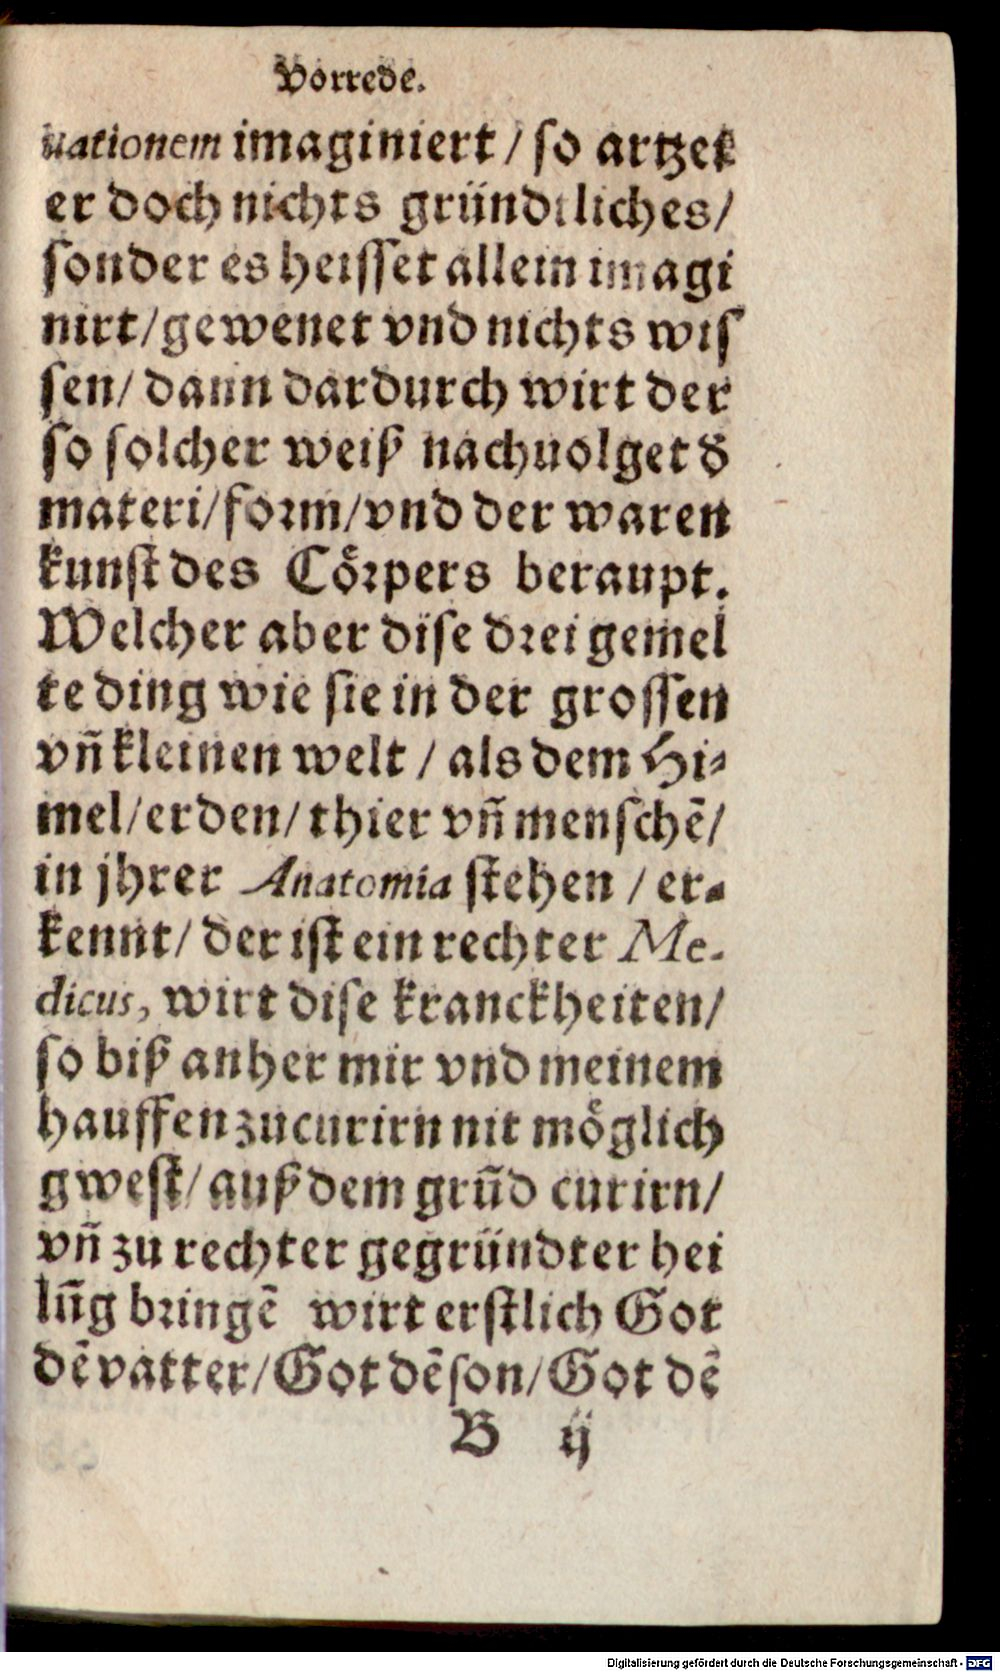 Vorrede.
uationem imaginiert / so artzet
er doch nichts gründtliches/
sonder es heisset allein imagi
nirt/gewenet vnd nichts wis
sen/ dann dardurch wirt der
so solcher weiß nachuolget d̕
materi/form/vnd der waren
kunst des Cörpers beraupt.
Welcher aber dise drei gemel
te ding wie sie in der grossen
vñ kleinen welt / als dem Hi-
mel/erden/ thier vñ menschē/
in jhrer Anatomia stehen / er-
kennt/ der ist ein rechter Me-
dicus, wirt dise kranckheiten/
so biß anher mir vnd meinem
hauffen zu curirn nit möglich
gwest/ auß dem grũd curirn/
vñ zu rechter gegründter hei
lũg bringē wirt erstlich Got
dē vatter/Got dē son/Got dē
B ij
Digitalisierung gefördert durch die Deutsche Forschungsgemeinschaft - DFG